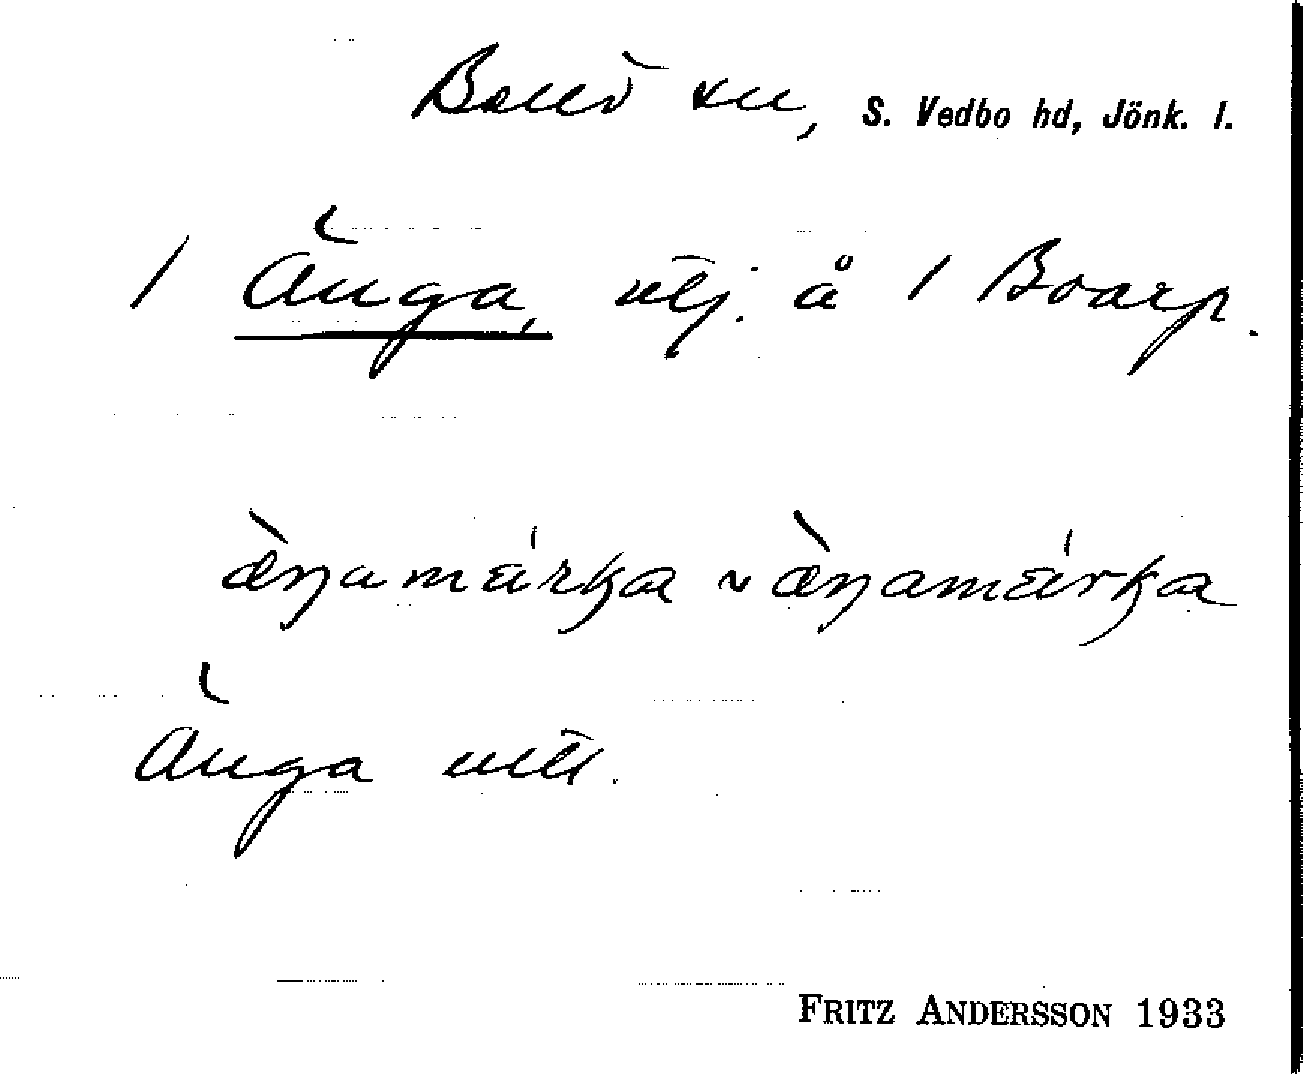 Barkeryd sn, S. Vedbo hd, Jönk. l.
/ Änga, vlj. å / Boarp.
æ̀ŋamárka ~ æ̀ŋamárka
Änga utt.
FRITZ ANDERSSON 1933